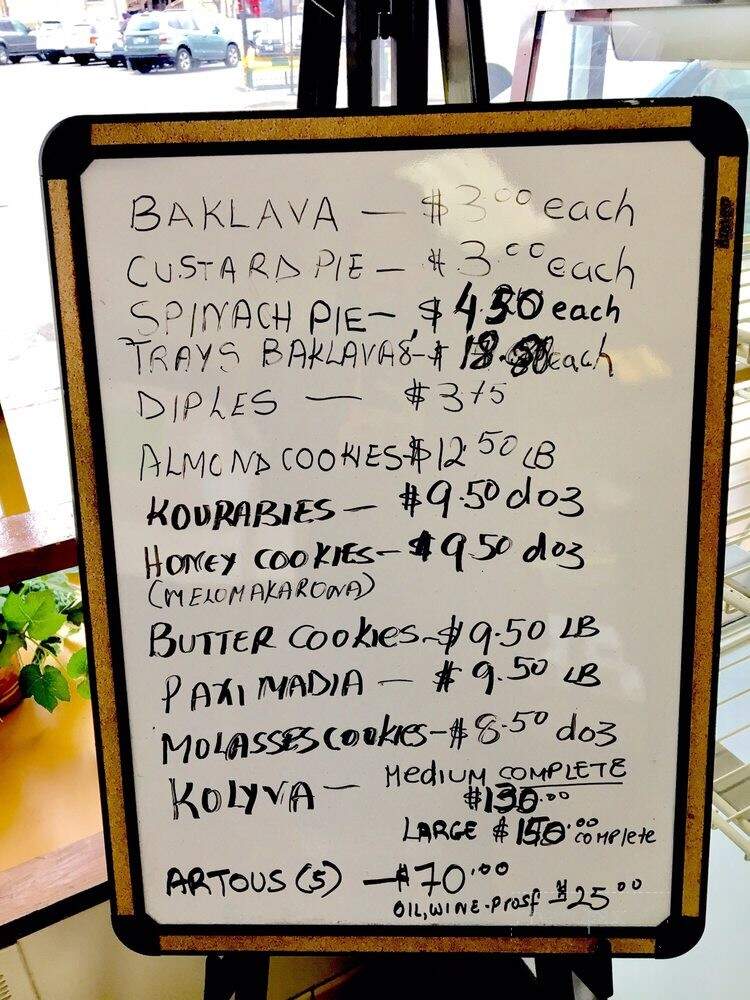 BAKLAVA — $3.00 each
CUSTARD PIE — $3.00 each
SPINACH PIE — $4.50 each
TRAYS BAKLAVAS - $ each
DIPLES — $375
ALMOND COOKIES - $12.50 LB
KOURABIES — $9.50 doz
HONEY COOKIES — $9.50 doz
(MELOMAKARONA)
BUTTER COOKIES - $9.50 LB
PAXIMADIA — $9.50 LB
MOLASSES COOKIES - $8.50 doz
KOLYVA — MEDIUM COMPLETE
$130.00
LARGE $150.00 COMPLETE
ARTOUS (5) — $70.00
OIL, WINE - Prosf - $25.00